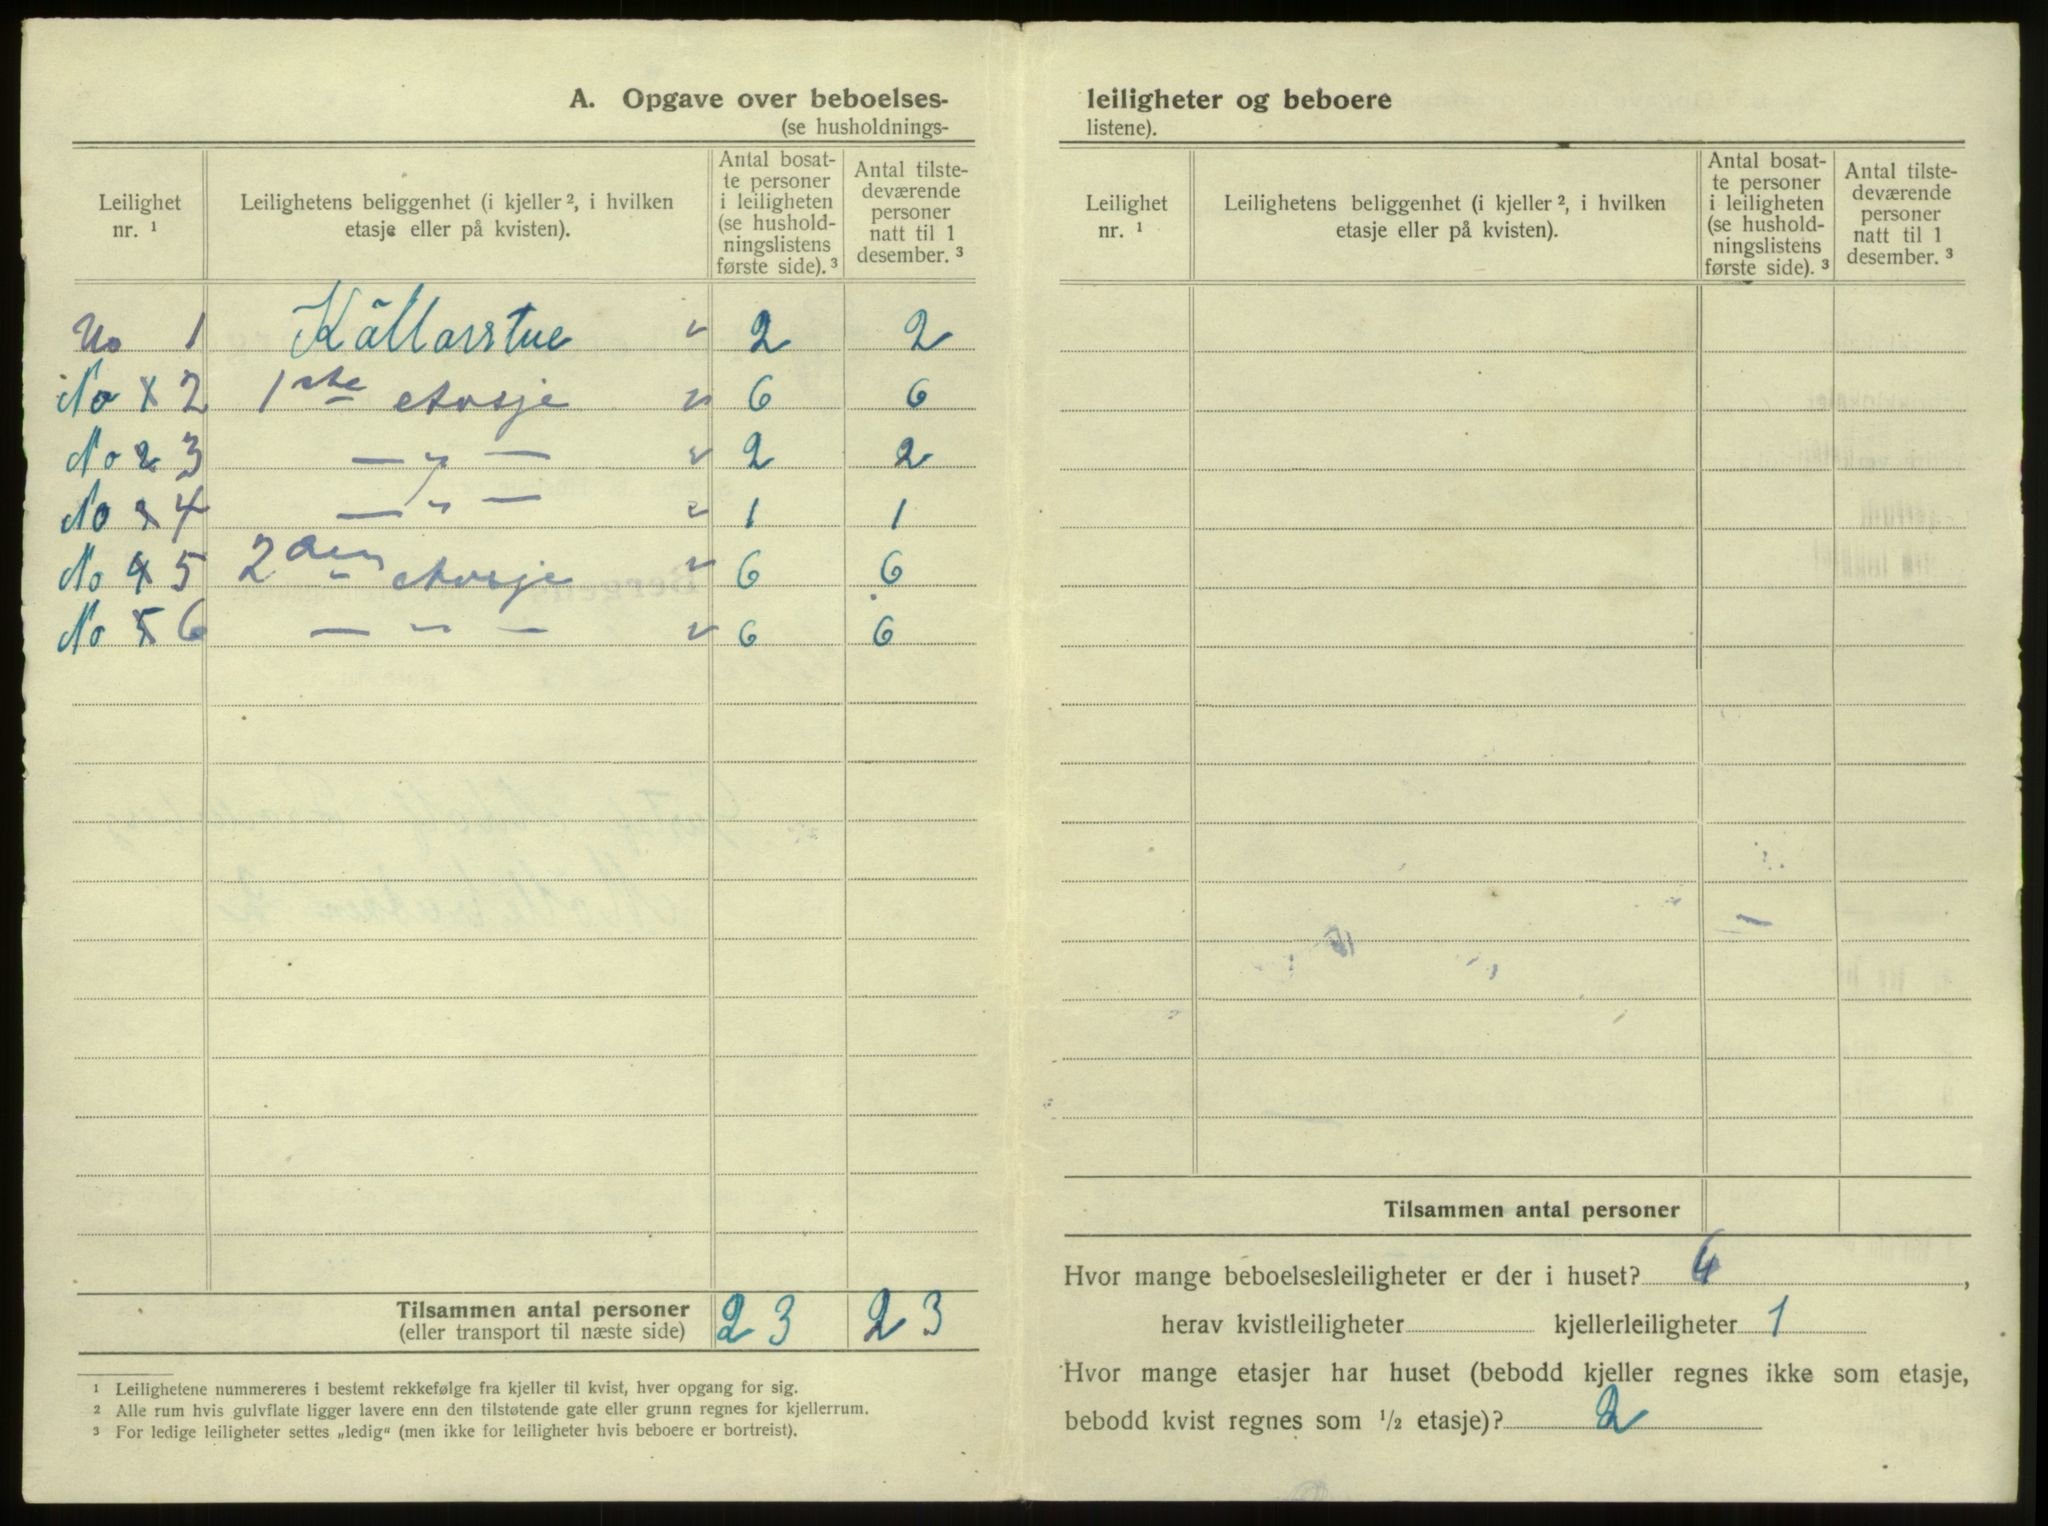 A. Opgave over beboelses-
(se husholdnings-
Leilighet nr. ¹
Leilighetens beliggenhet (i kjeller ², i hvilken etasje eller på kvisten).
Antal bosat-
te personer
i leiligheten
(se hushold-
ningslistens
første side). ³
Antal tilste-
deværende
personer
natt til 1
desember. ³
No 1 Kållarstue " 2 2
No 2 1ste etasje " 6 6
No 3 — " — " 2 2
No 4 — " — " 1 1
No 5 2den etasje " 6 6
No 6 — " — " 6 6
Tilsammen antal personer 23 23
(eller transport til næste side)
¹ Leilighetene nummereres i bestemt rekkefølge fra kjeller til kvist, hver opgang for sig.
² Alle rum hvis gulvflate ligger lavere enn den tilstøtende gate eller grunn regnes for kjellerrum.
³ For ledige leiligheter settes „ledig" (men ikke for leiligheter hvis beboere er bortreist).
leiligheter og beboere
listene).
Leilighet nr. ¹
Leilighetens beliggenhet (i kjeller ², i hvilken etasje eller på kvisten).
Antal bosat-
te personer
i leiligheten
(se hushold-
ningslistens
første side). ³
Antal tilste-
deværende
personer
natt til 1
desember. ³
Tilsammen antal personer
Hvor mange beboelsesleiligheter er der i huset? ,
herav kvistleiligheter kjellerleiligheter 1
Hvor mange etasjer har huset (bebodd kjeller regnes ikke som etasje,
bebodd kvist regnes som ¹/₂ etasje)? 2